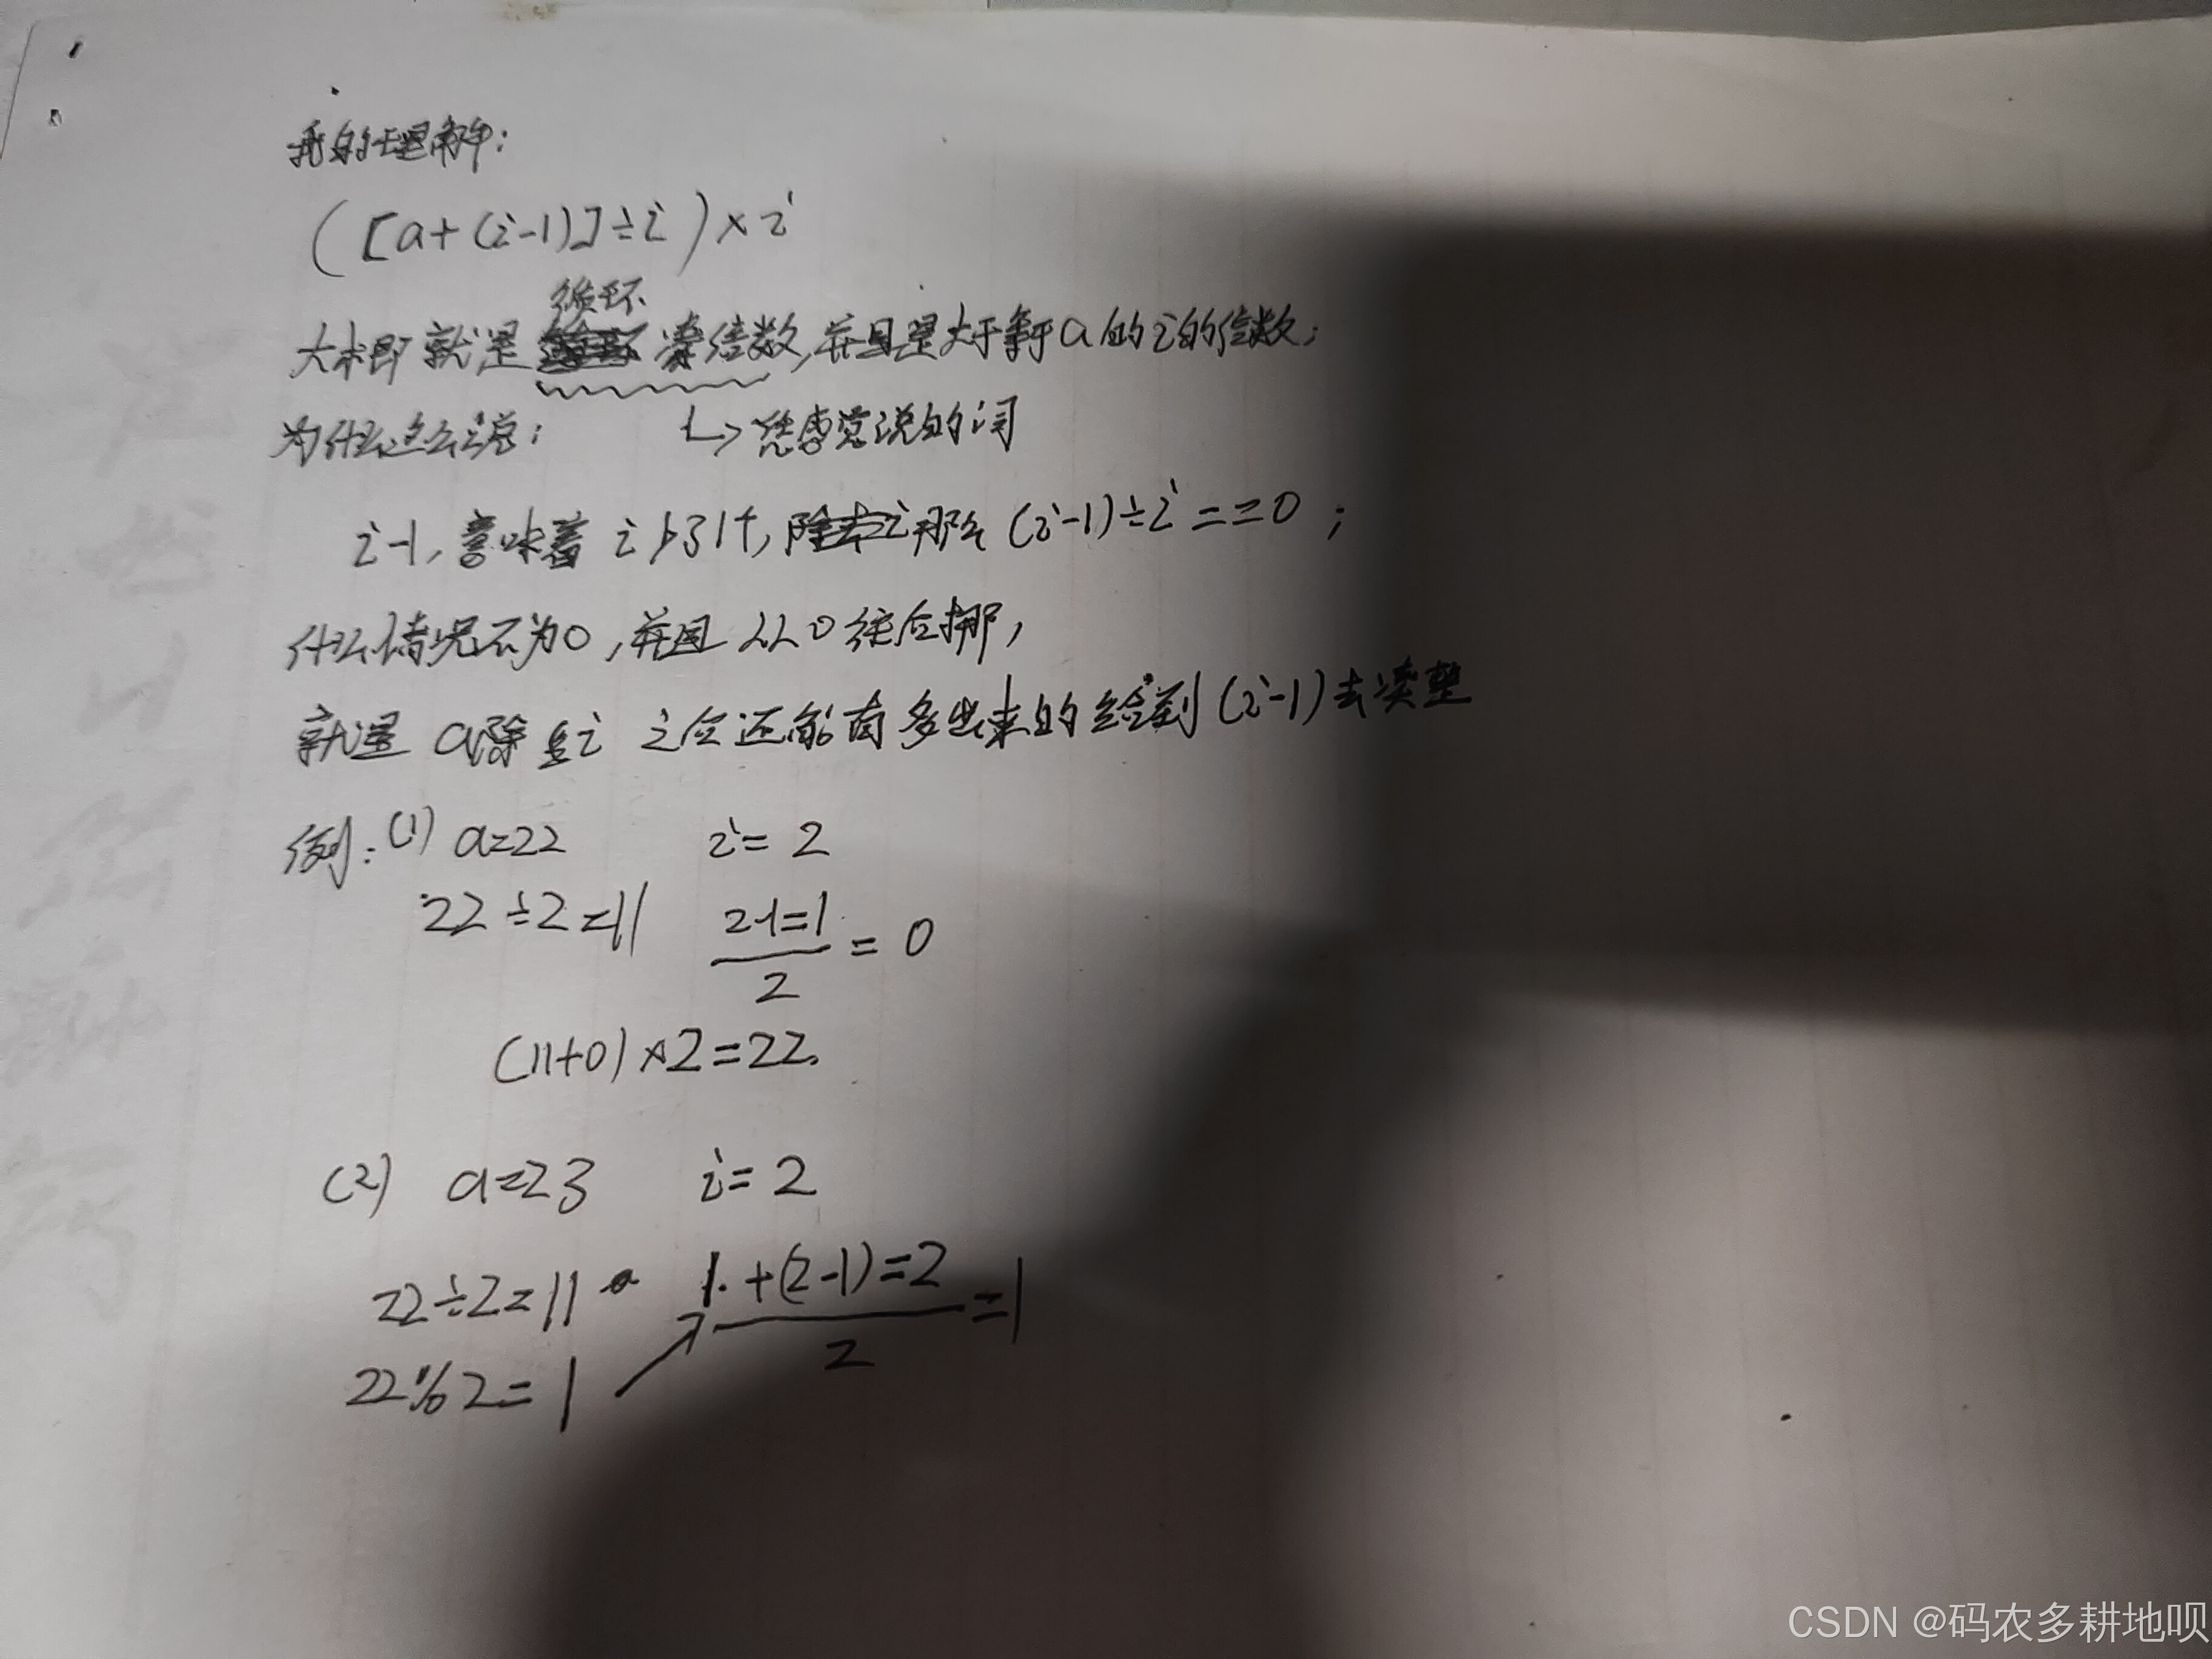 我的理解:
([a+(i-1)]÷i)×i
大概就是循环凑倍数,并且是大于等于a的i的倍数;
为什么这么说: ↳凭感觉说的词
i-1,意味着i少了1个,那么(i-1)÷i==0;
什么情况不为0,并且从0往后挪,
就是a除以i之后还能有多出来的给到(i-1)去凑整
例:(1) a=22 i=2
22÷2=11 2-1=1/2=0
(11+0)×2=22.
(2) a=23 i=2
22÷2=11 1+(2-1)=2/2=1
22%2=1
CSDN @码农多耕地呗